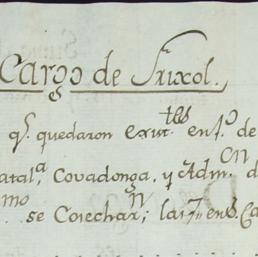 Cargo de Frixol.
qs. quedaron exist.tes en f.o de
atal.a, Covadonga, y Adm.on d
mo se Cosecharn; las